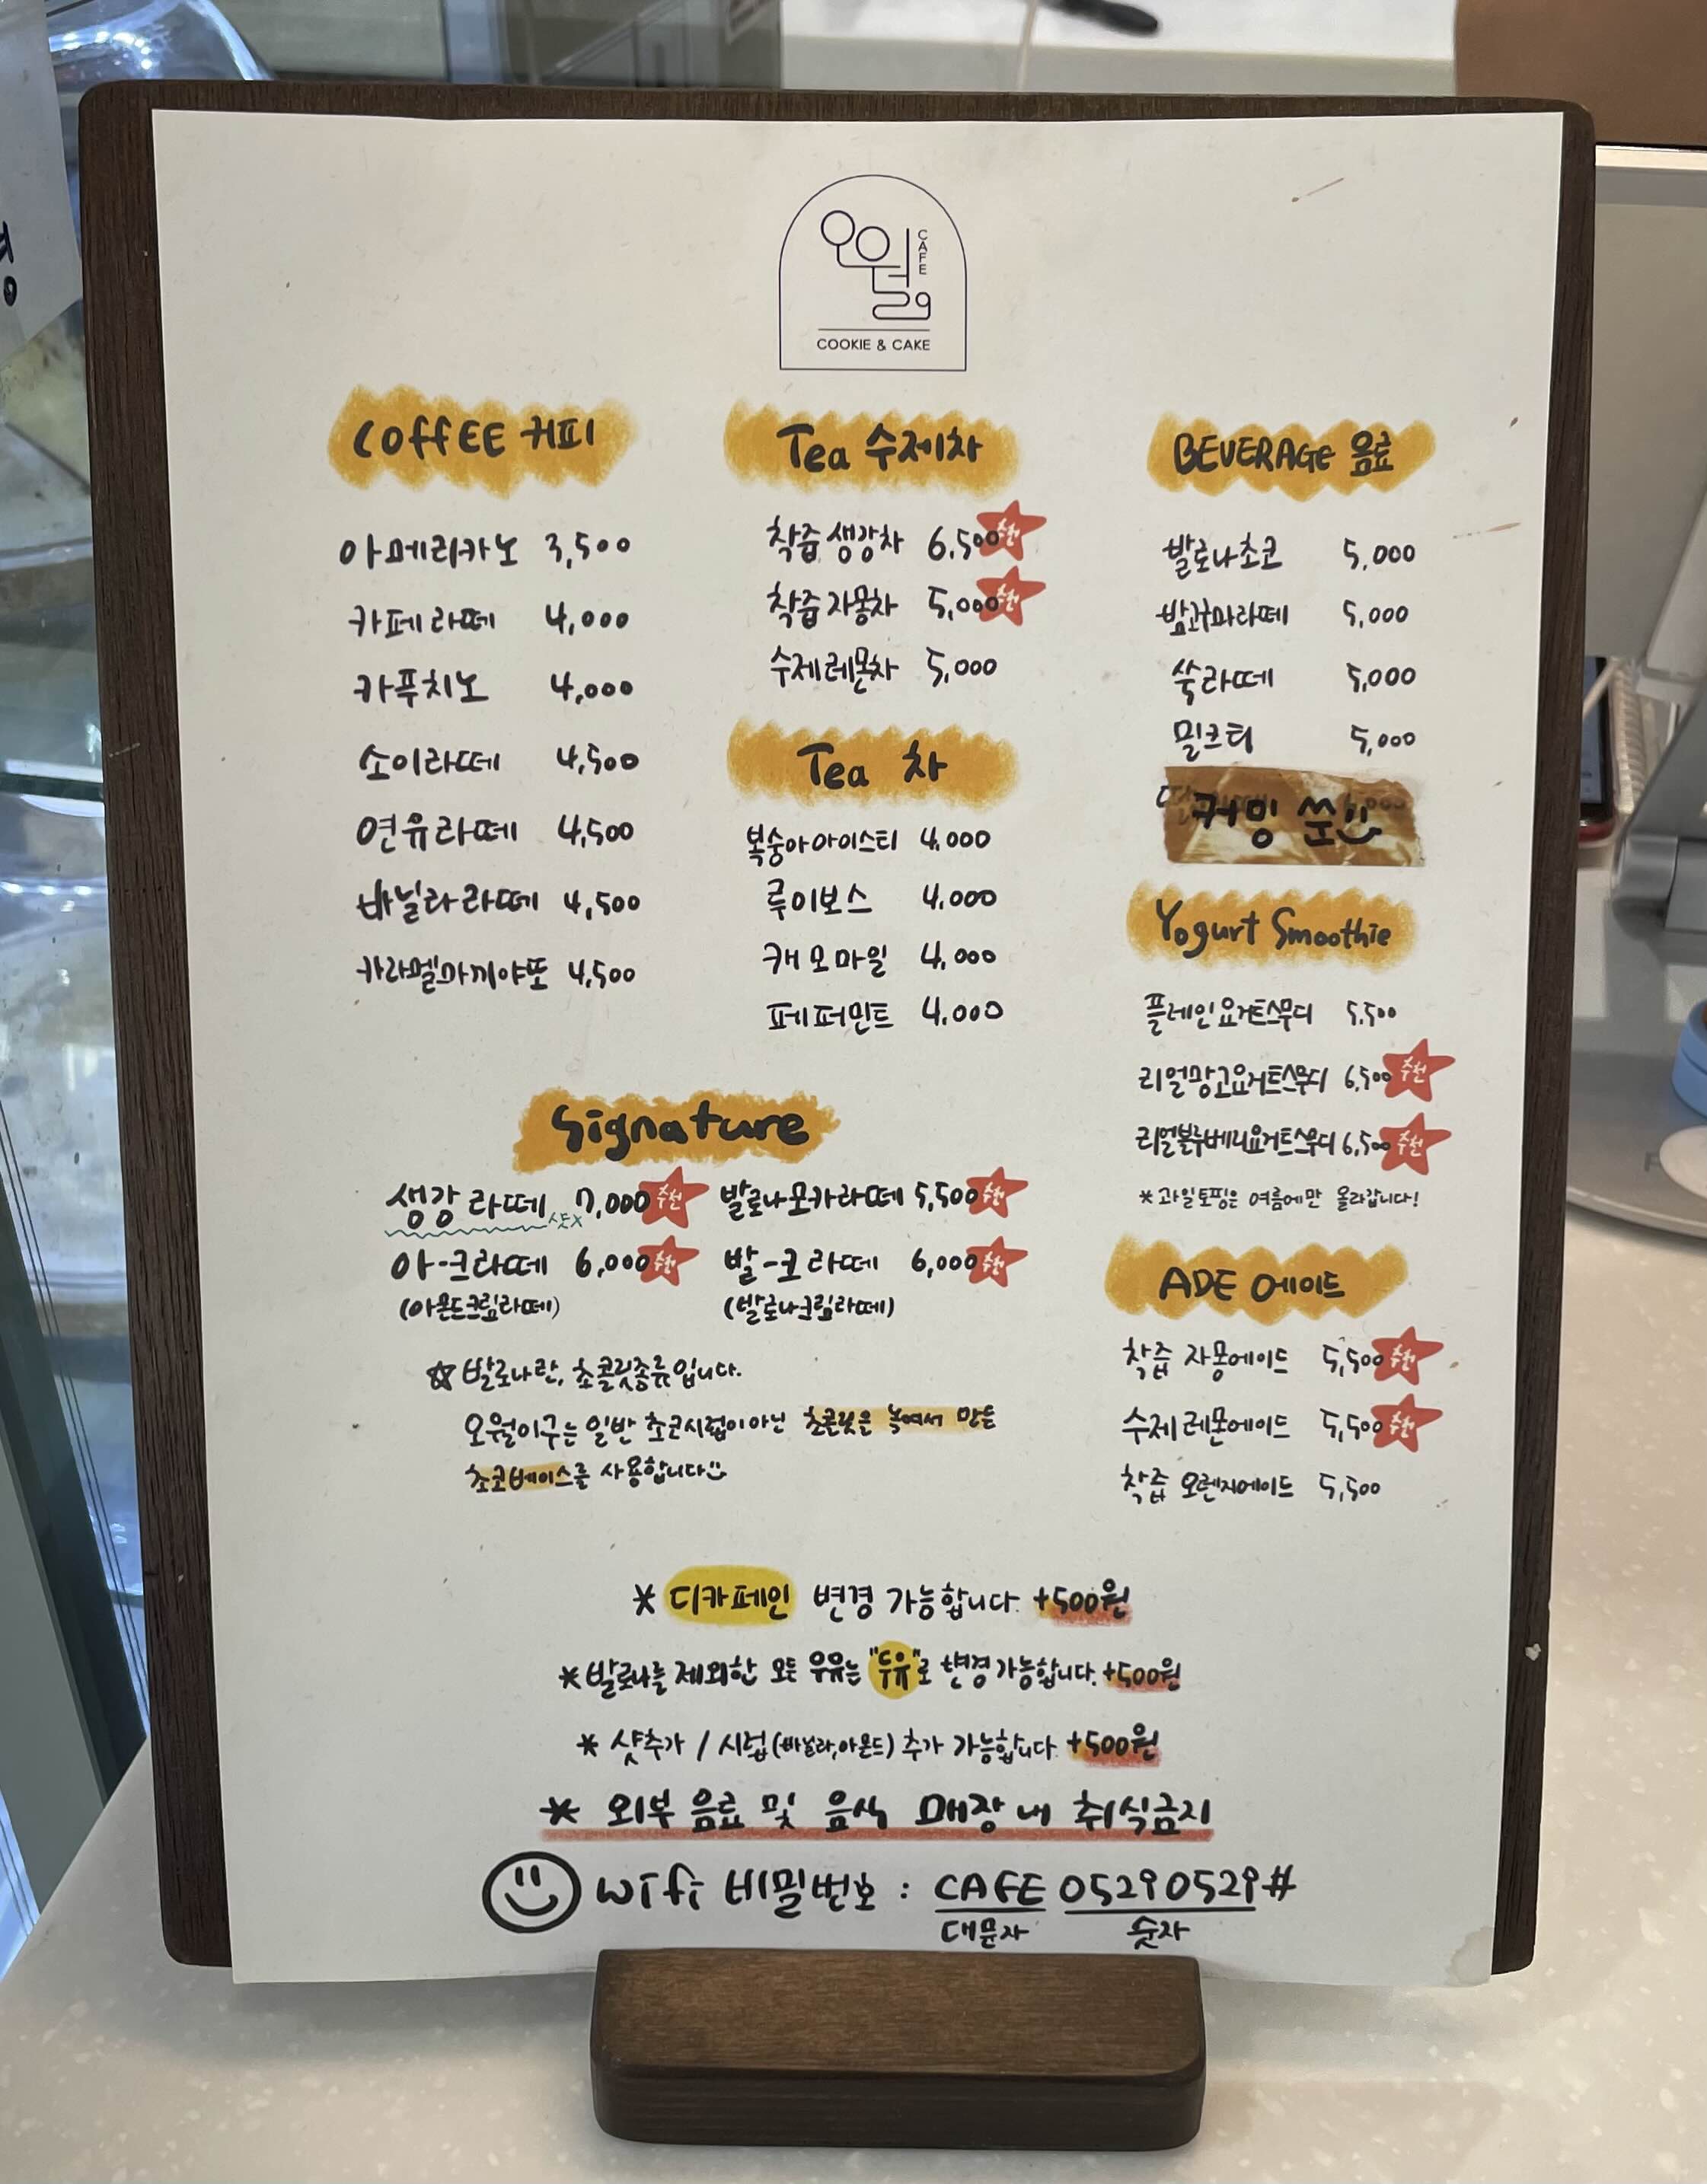 오월 29
CAFE
COOKIE & CAKE
COFFEE 커피
아메리카노 3,500
카페라떼 4,000
카푸치노 4,000
소이라떼 4,500
연유라떼 4,500
바닐라라떼 4,500
카라멜마끼야또 4,500
Tea 수제차
착즙생강차 6,500 추천
착즙자몽차 5,000 추천
수제레몬차 5,000
Tea 차
복숭아아이스티 4,000
루이보스 4,000
캐모마일 4,000
페퍼민트 4,000
BEVERAGE 음료
발로나초코 5,000
밤고구마라떼 5,000
쑥라떼 5,000
밀크티 5,000
커밍쑨!!
Yogurt Smoothie
플레인요거트스무디 5,500
리얼망고요거트스무디 6,500 추천
리얼블루베리요거트스무디 6,500 추천
*과일토핑은 여름에만 올라갑니다!
ADE 에이드
착즙 자몽에이드 5,500 추천
수제레몬에이드 5,500 추천
착즙 오렌지에이드 5,500
Signature
생강라떼 샷x 7,000 추천
발로나모카라떼 5,500 추천
아-크라떼 6,000 추천
(아몬드크림라떼)
발-크라떼 6,000 추천
(발로나크림라떼)
☆발로나란, 초콜릿종류입니다.
오월이구는 일반 초코시럽이아닌 초콜릿을 녹여서 만든
초코베이스를 사용합니다
* 디카페인 변경 가능합니다. +500원
*발로나를 제외한 모든 우유는 "두유"로 변경가능합니다. +500원
* 샷추가 / 시럽(바닐라,아몬드) 추가 가능합니다. +500원
* 외부 음료 및 음식 매장 내 취식금지
wifi 비밀번호 : CAFE05290529#
대문자 숫자